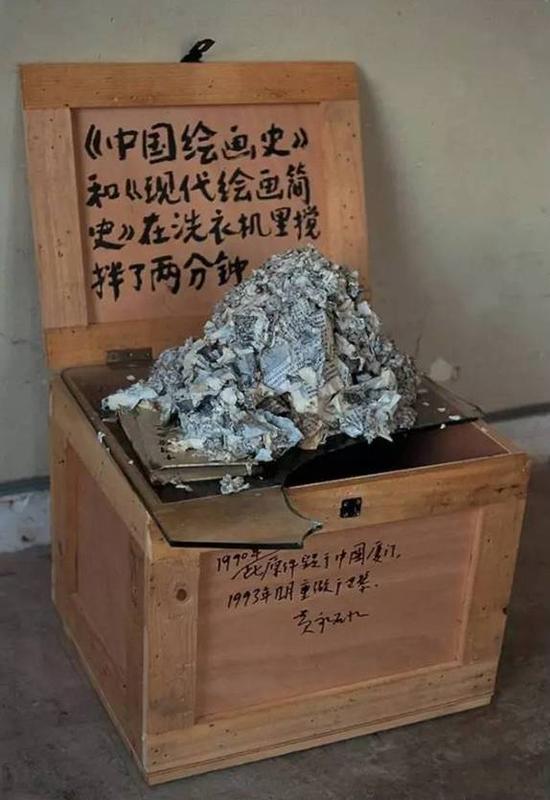 《中国绘画史》
和《现代绘画简
史》在洗衣机里搅
拌了两分钟
1990年
此原件毁于中国厦门,
1993年 月重做于巴黎.
黄永砯